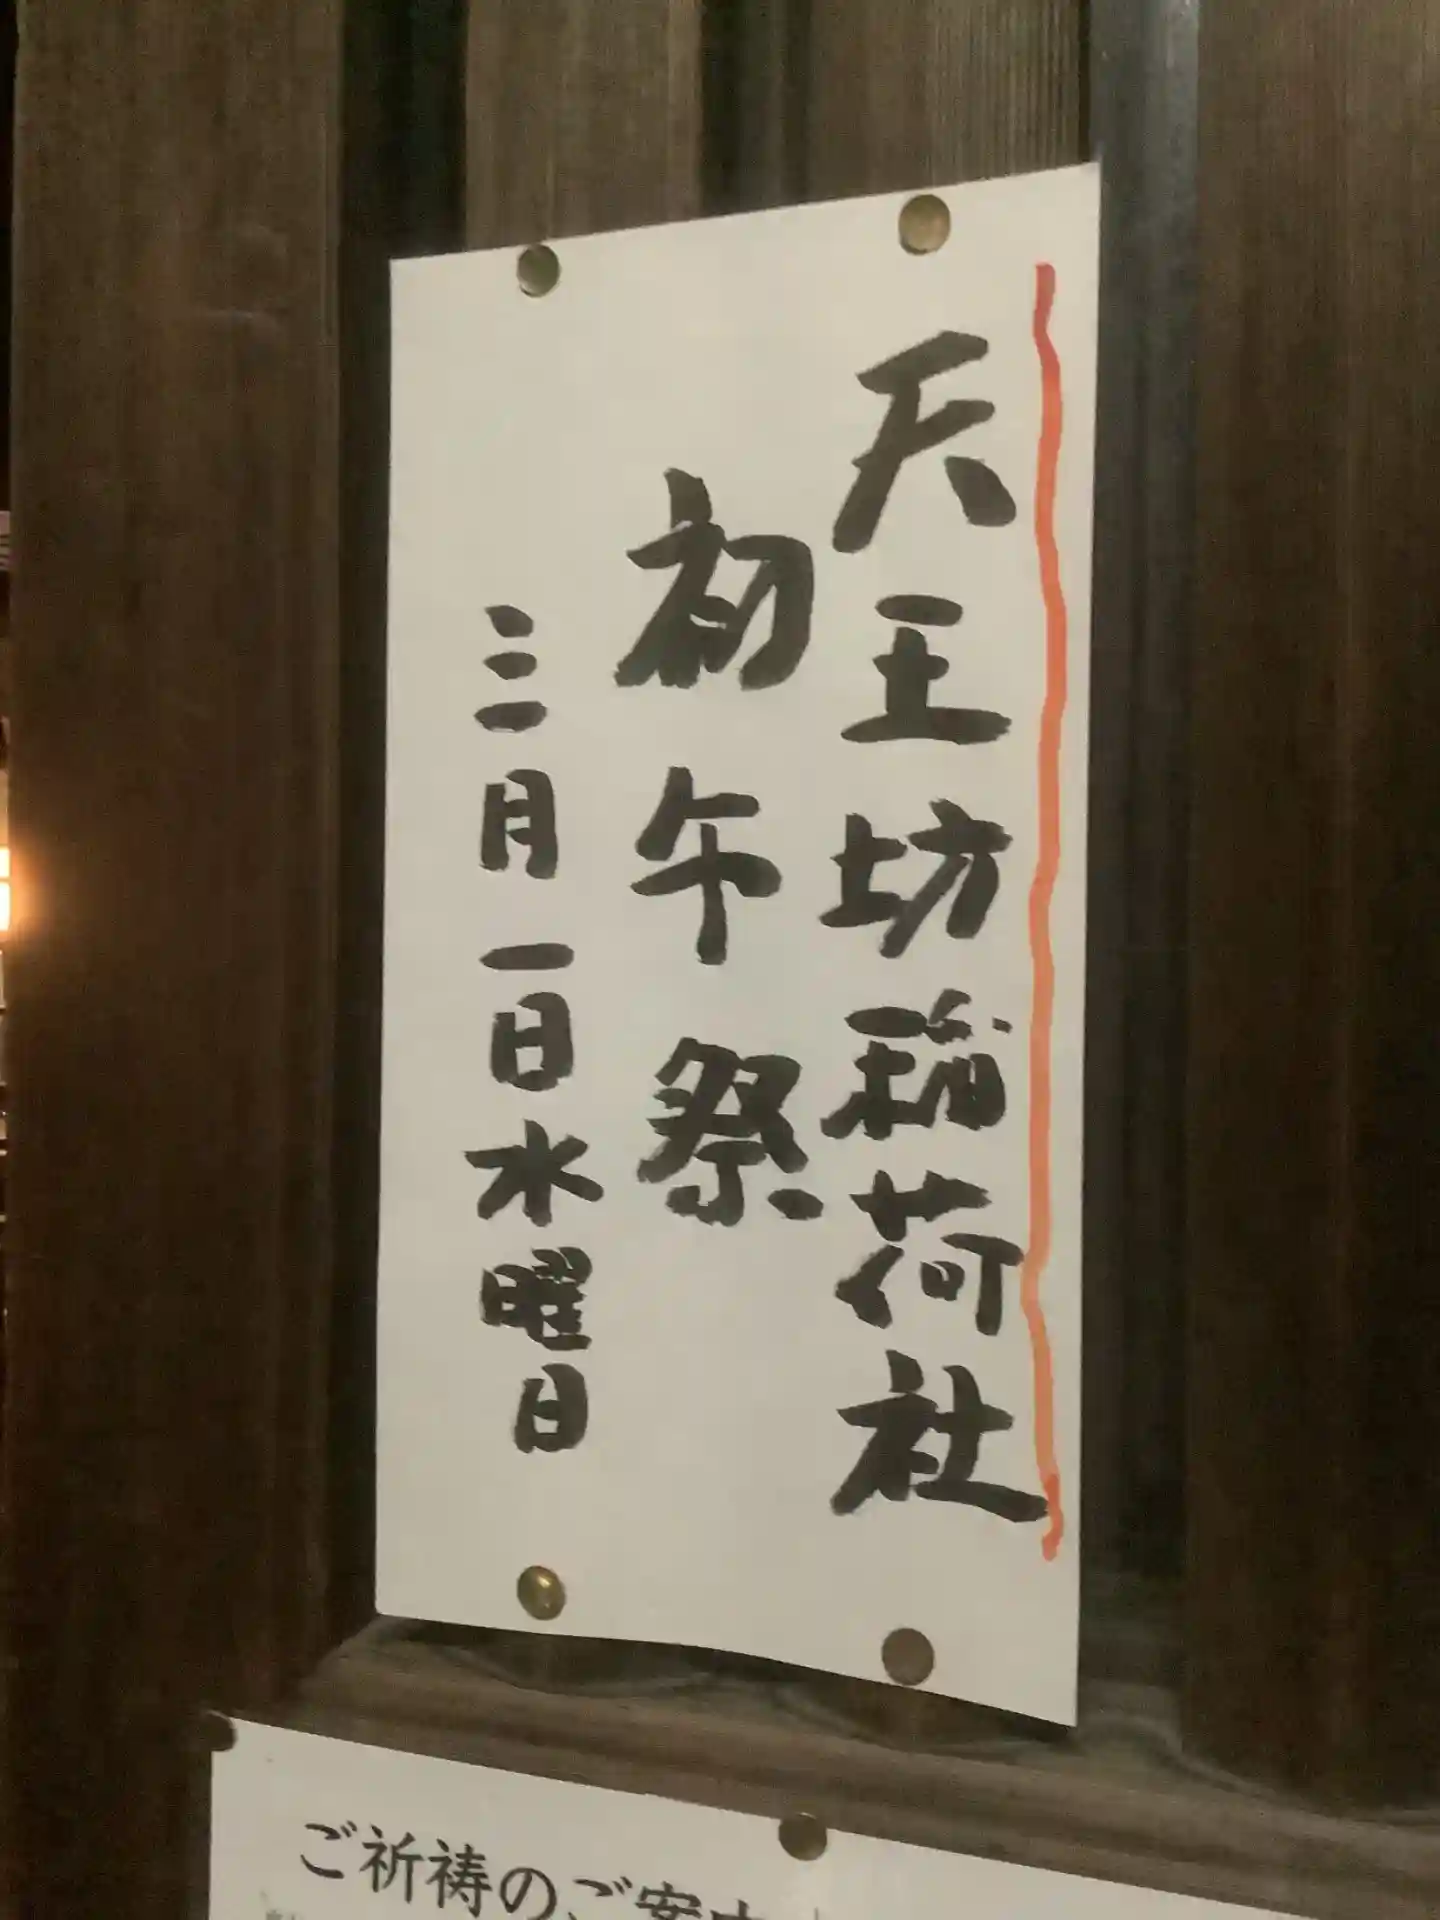 天王坊稲荷社
初午祭
三月一日水曜日
ご祈祷のご案内